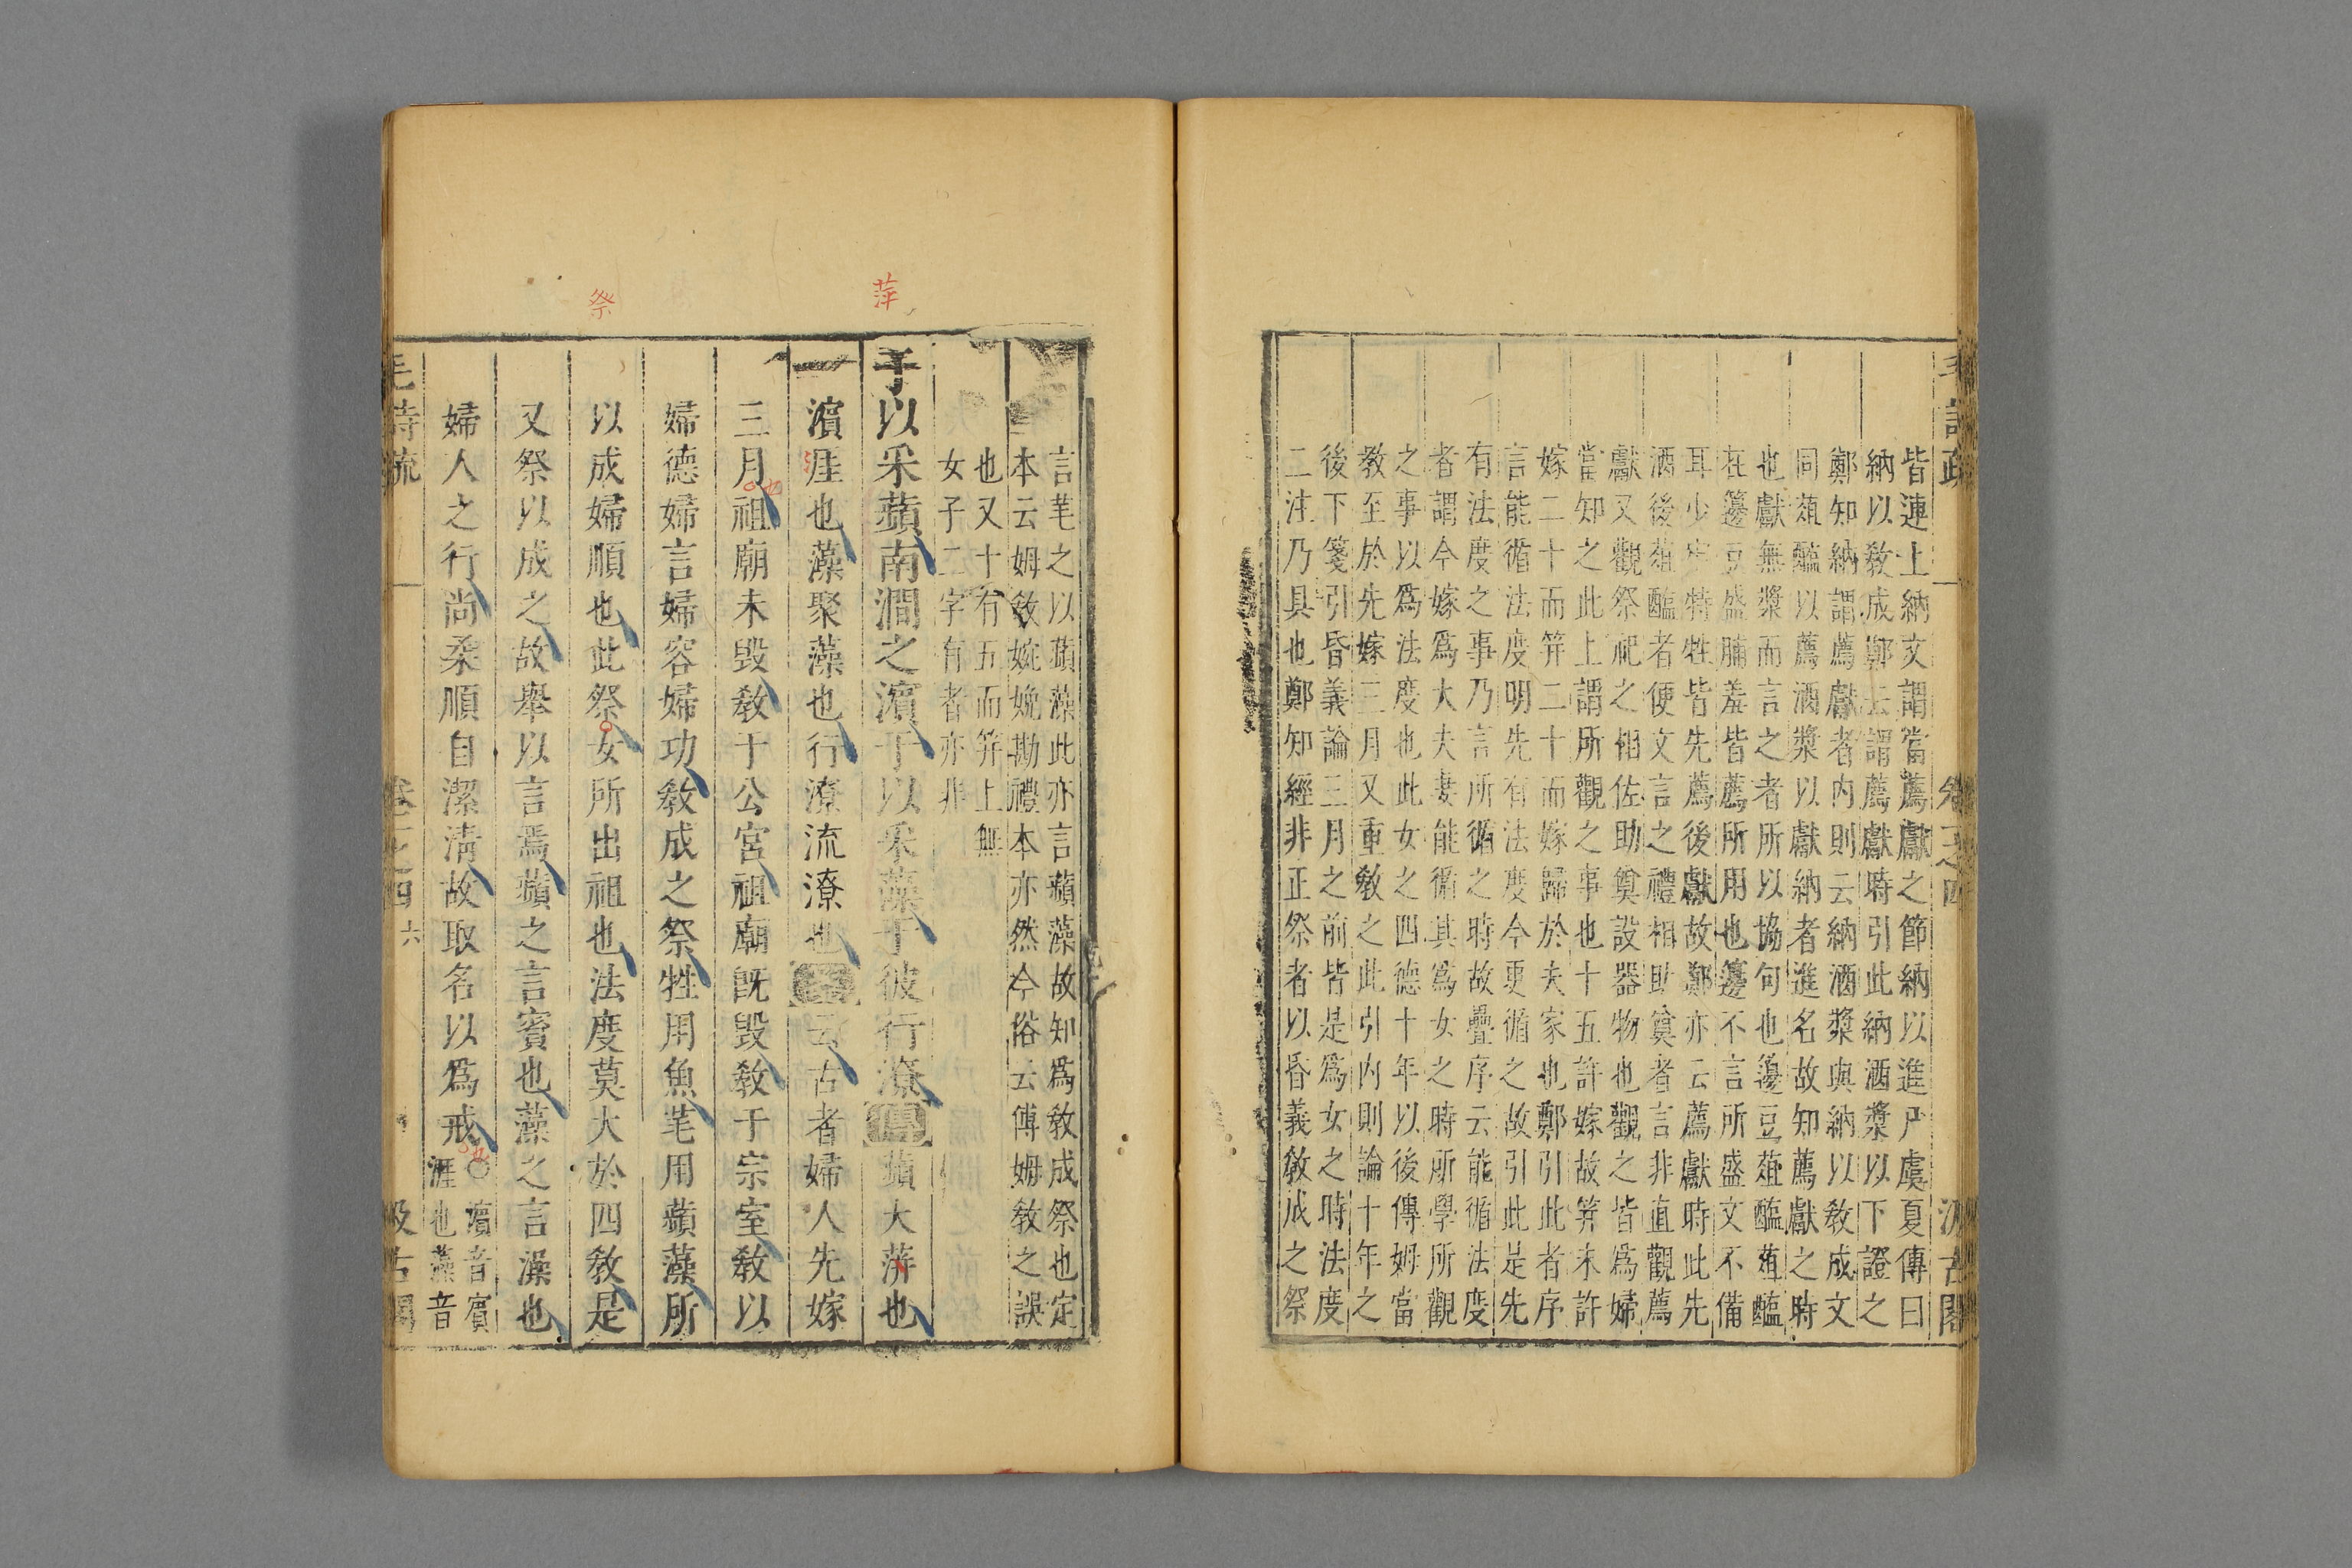 毛詩疏 卷一之四 汲古閣
皆連上納文謂當薦獻之節納以進尸虞夏傳曰
納以敎成鄭云謂薦獻時引此納酒漿以下證之
鄭知納謂薦獻者內則云納酒漿與納以敎成文
同葅醢以薦酒漿以獻納者進名故知薦獻之時
也獻無漿而言之者所以協句也籩豆葅醢葅醢
在籩豆盛脯羞皆薦所用也籩不言所盛文不備
耳少牢特牲皆先薦後獻故鄭亦云薦獻時此先
酒後葅醢者便文言之禮相助奠者言非直觀薦
獻又觀祭祀之相佐助奠設器物也觀之皆爲婦
當知之此上謂所觀之事也十五許嫁故笄未許
嫁二十而笄二十而嫁歸於夫家也鄭引此者序
言能循法度明先有法度今更循之故引此是先
有法度之事乃言所循之時故疊序云能循法度
者謂今嫁爲大夫妻能循其爲女之時所學所觀
之事以爲法度也此女之四德十年以後傳姆當
敎至於先嫁三月又重敎之此引內則論十年之
後下箋引昏義論三月之前皆是爲女之時法度
二注乃具也鄭知經非正祭者以昏義敎成之祭
言芼之以蘋藻此亦言蘋藻故知爲敎成祭也定
本云姆敎婉娩勘禮本亦然今俗云傅姆敎之誤
也又十有五而笄上無
女子二字有者亦非
萍
于以采蘋南澗之濱于以采藻于彼行潦傳蘋大蓱也
濱涯也藻聚藻也行潦流潦也箋云古者婦人先嫁
三月祖廟未毀敎于公宮祖廟旣毀敎于宗室敎以
也
婦德婦言婦容婦功敎成之祭牲用魚芼用蘋藻所
祭
以成婦順也此祭女所出祖也法度莫大於四敎是
又祭以成之故舉以言焉蘋之言賓也藻之言澡也
婦人之行尚柔順自潔淸故取名以爲戒○濱音賓
涯也藻音
毛詩疏 卷一之四 六 汲古閣